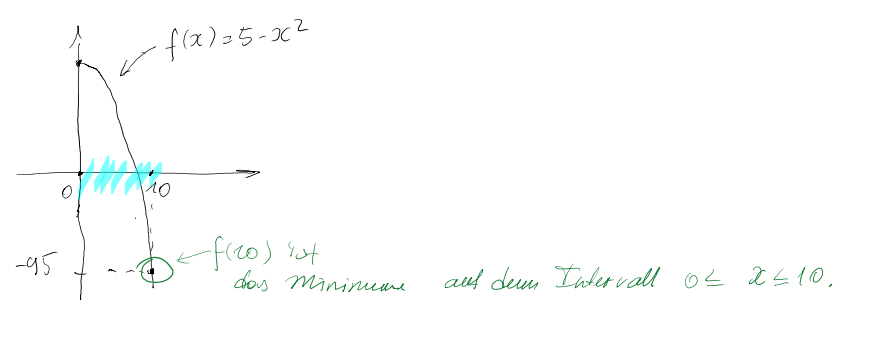 f(x) = 5 - x²
0
10
-95
f(10) ist
das Minimum auf dem Intervall 0 ≤ x ≤ 10.